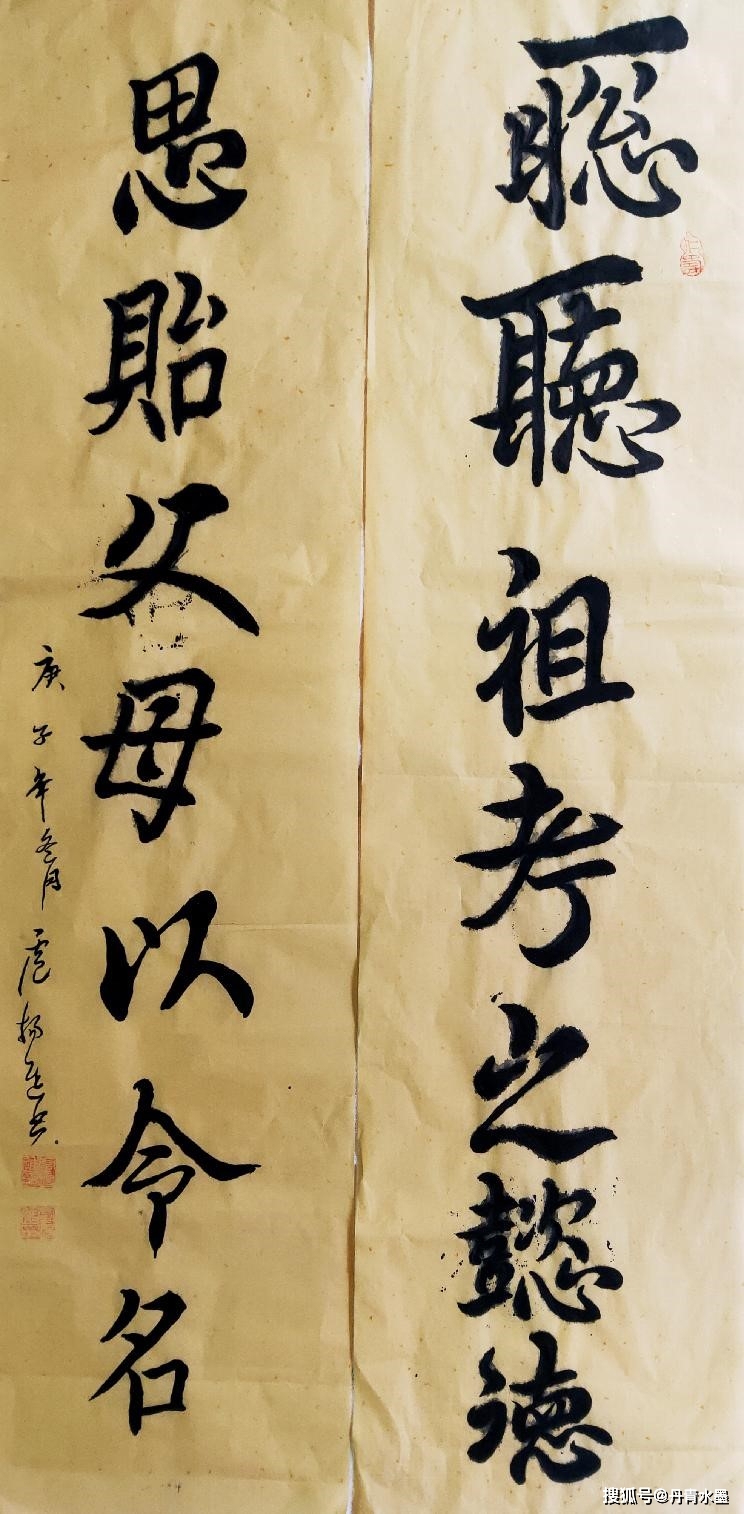 聰聽祖考之懿德
思貽父母以令名
庚子年冬月
搜狐号@丹青水墨